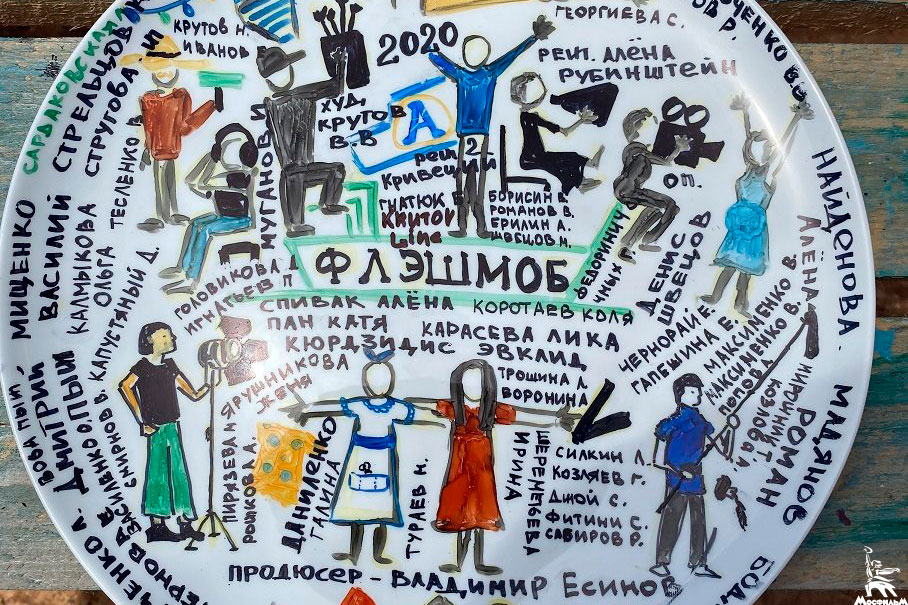 КРУТОВ Н.
ИВАНОВ
ГЕОРГИЕВА С.
2020
САРДАКОВСКАЯ
СТРЕЛЬЦОВ
СТРУГОВА
ТЕСЛЕНКО
МУГАНОВ И
ХУД.
КРУТОВ
В.В
А
РЕЖ.
КРИВЕЦКИЙ
2
РЕЖ. АЛЁНА
РУБИНШТЕЙН
ГНАТЮК
Krutov
Line
БОРИСИН В.
РОМАНОВ В.
ЕРИЛИН А.
ШВЕЦОВ Н.
ОП.
ДЕНИС
ШВЕЦОВ
ФЕДОРИНИЧ
ФЛЭШМОБ
МИЩЕНКО
ВАСИЛИЙ
КАЛМЫКОВА
ОЛЬГА
КАПУСТЯНЫЙ Д.
ГОЛОВИКОВА
ИГНАТЬЕВ П
СПИВАК АЛЁНА
КОРОТАЕВ КОЛЯ
ПАН КАТЯ
КАРАСЕВА ЛИКА
КЮРДЗИДИС ЭВКЛИД
ТРОШИНА Л.
ВОРОНИНА
ЯРУШНИКОВА
ЖЕНЯ
ЧЕРНОРАЙ Е.
ГАПЕШИНА Е.
МАКСИМЕНКО В.
НАЙДЕНОВА
АЛЁНА
МАДЯНОВ
РОМАН
ДМИТРИЙ
СМИРНОВ В.
РОШКОВА А.
ДАНИЛЕНКО
ГАЛИНА
ТУРАЕВ Н.
ШЕРЕМЕТЬЕВА
ИРИНА
СИЛКИН Л.
КОЗЛЯЕВ Г.
ДЖОЙ С.
ФИТИНИ С.
САБИРОВ Р.
ПРОДЮСЕР - ВЛАДИМИР ЕСИНОВ
МОСФИЛЬМ